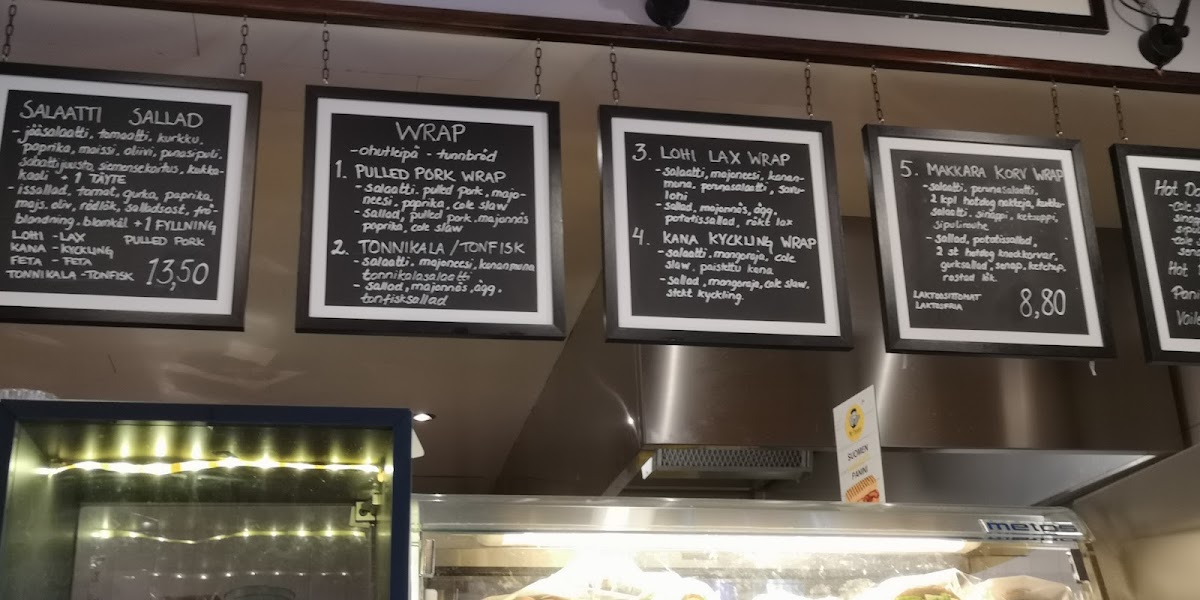 SALAATTI SALLAD
- jääsalaatti, tomaatti, kurkku,
paprika, maissi, oliivi, punasipuli,
salaattijuusto, siemensekoitus, kukka-
kaali + 1 TÄYTE
- issallad, tomat, gurka, paprika,
majs, oliv, rödlök, salladsost, frö-
blandning, blomkål + 1 FYLLNING
LOHI - LAX PULLED PORK
KANA - KYCKLING
FETA - FETA
TONNIKALA - TONFISK 13,50
WRAP
- ohutleipä - tunnbröd
1. PULLED PORK WRAP
- salaatti, pulled pork, majo-
neesi, paprika, cole slaw
- sallad, pulled pork, majonnäs
paprika, cole slaw
2. TONNIKALA / TONFISK
- salaatti, majoneesi, kananmuna
tonnikalasalaatti
- sallad, majonnäs, ägg,
tonfisksallad
3. LOHI LAX WRAP
- salaatti, majoneesi, kanan-
muna, perunasalaatti, savu-
lohi
- sallad, majonnäs, ägg,
potatissallad, rökt lax
4. KANA KYCKLING WRAP
- salaatti, mangoraja, cole
slaw, paistettu kana
- sallad, mangoraja, cole slaw,
stekt kyckling.
5. MAKKARA KORV WRAP
- salaatti, perunasalaatti,
2 kpl hotdog nakkeja, kurkku-
salaatti, sinappi, ketsuppi,
sipulirouhe
- sallad, potatissallad,
2 st hotdog knackkorvar,
gurksallad, senap, ketchup,
rostad lök.
LAKTOOSITTOMAT
LAKTOSFRIA 8,80
Hot
Hot
SUOMEN
PANINI
metos